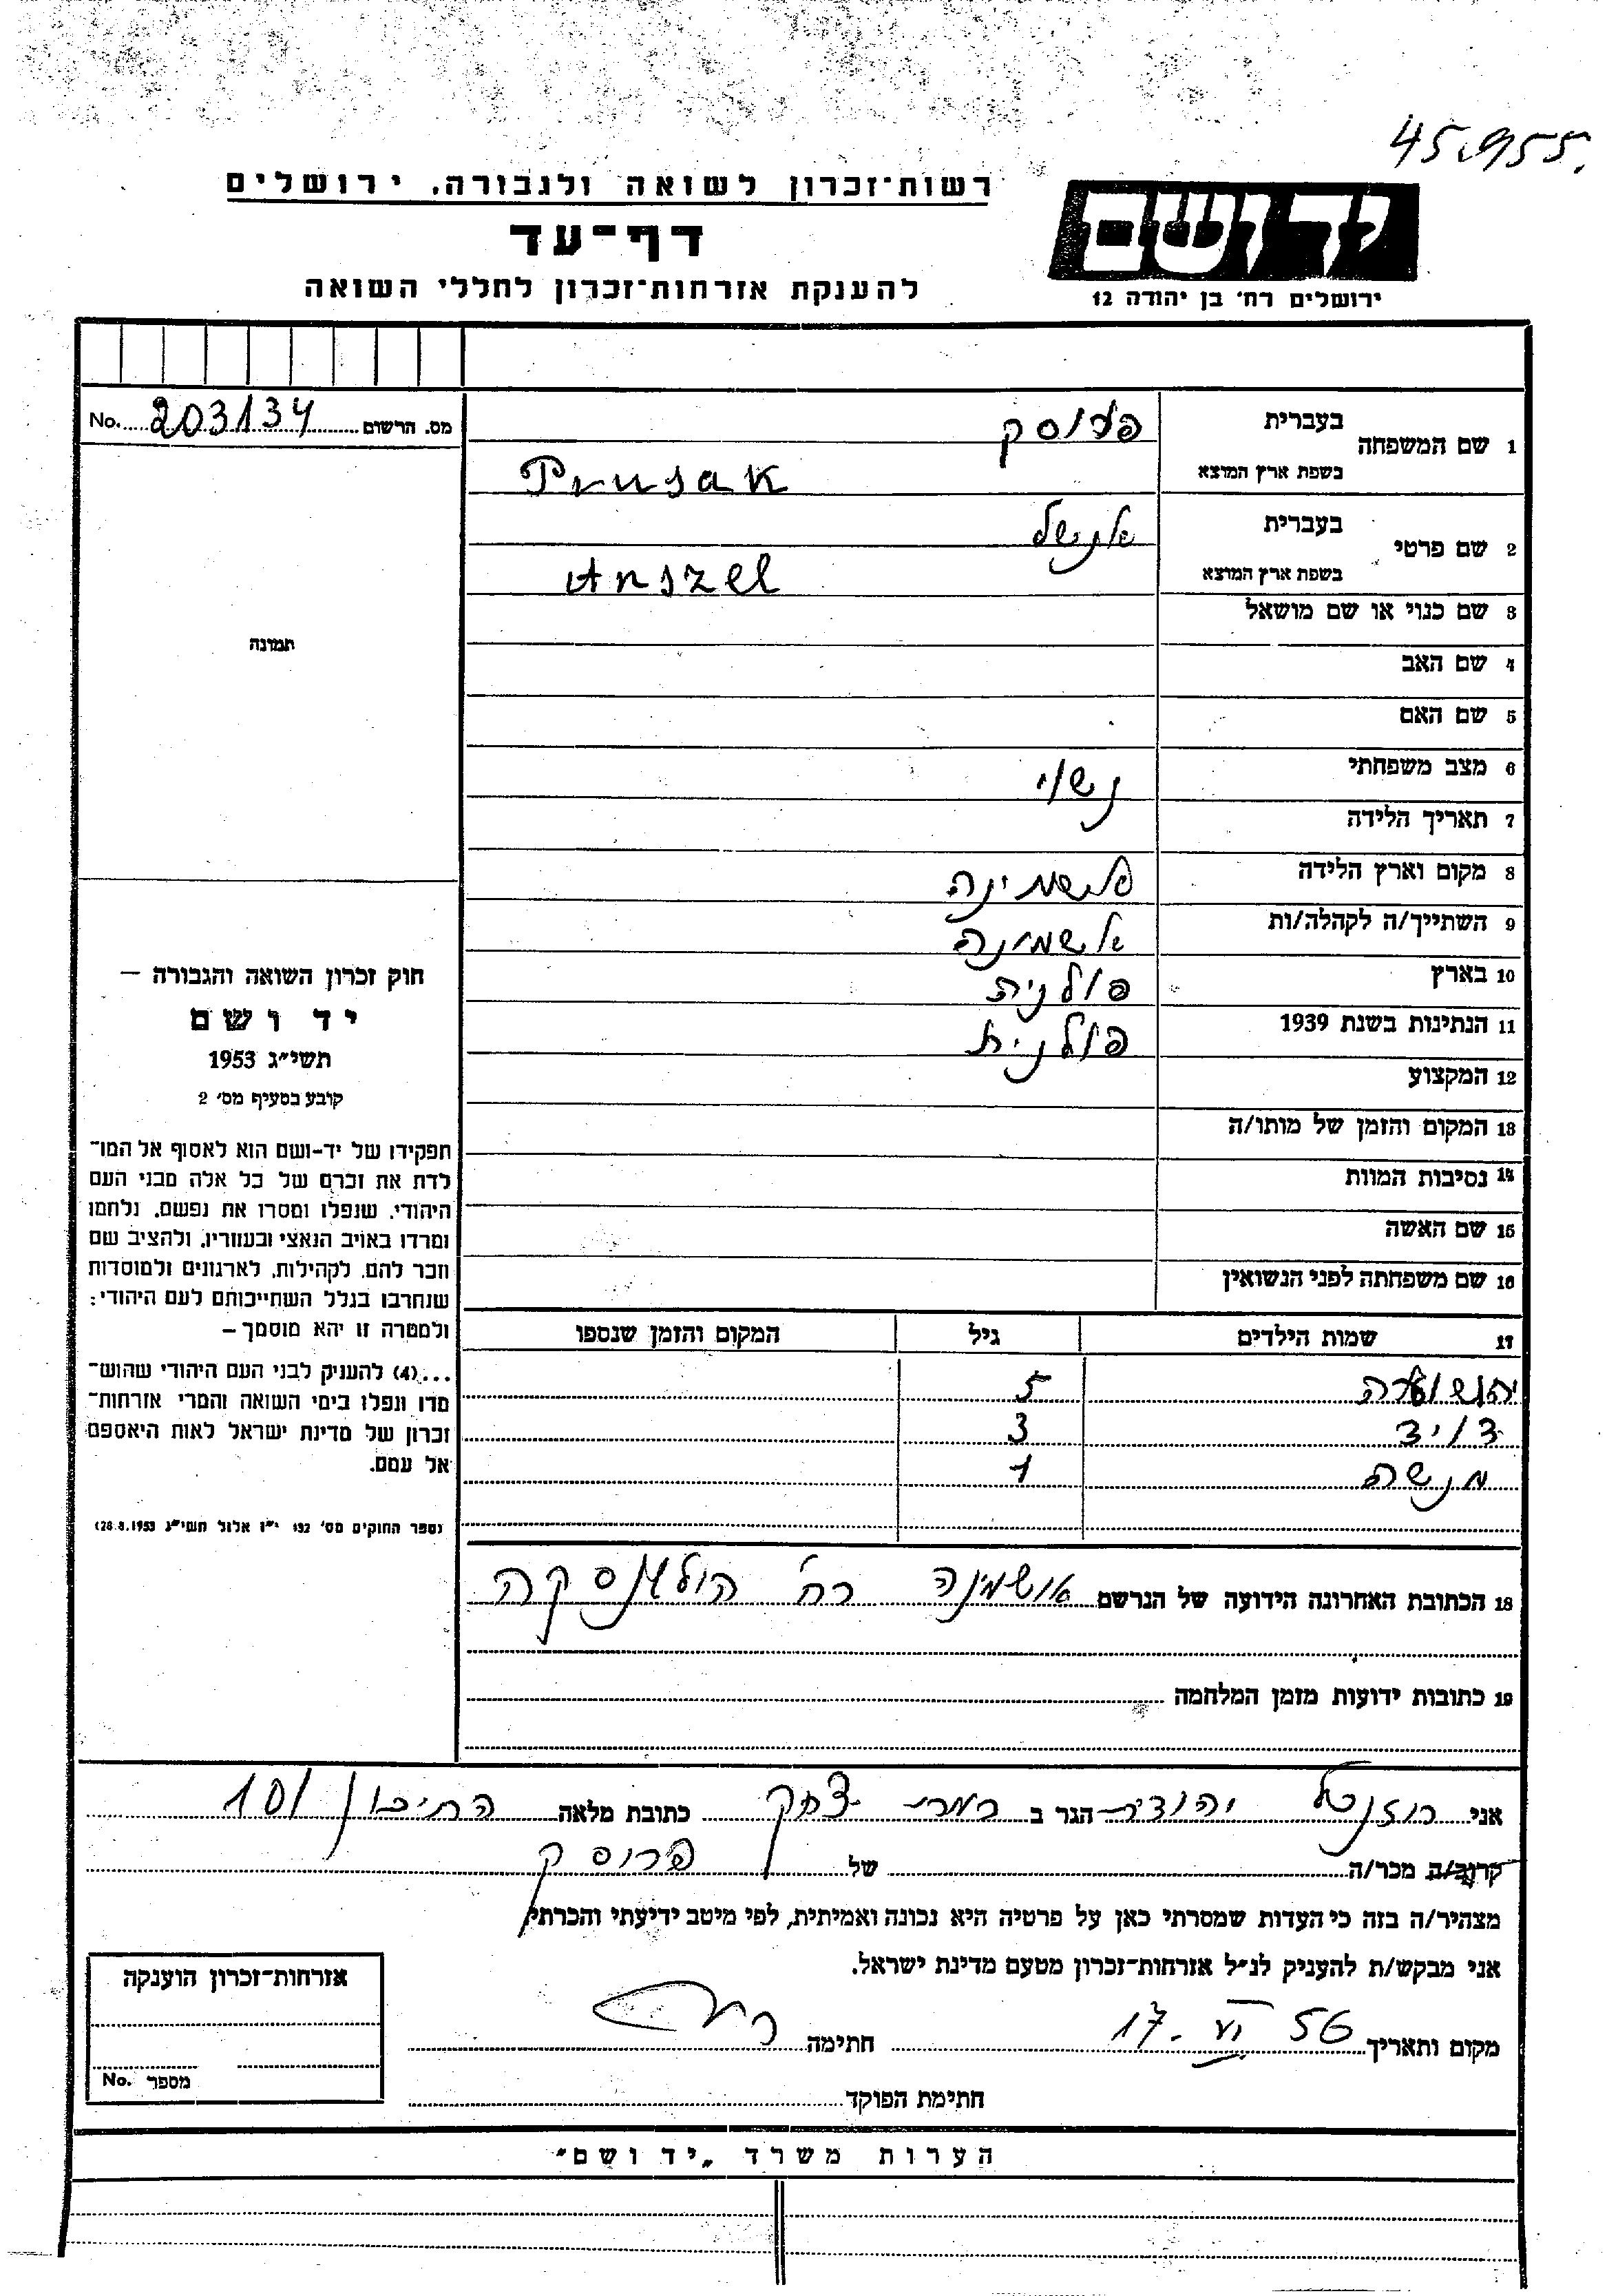 45.955.
רשות־זכרון לשואה ולגבורה, ירושלים
יד ושם
דף־עד
ירושלים רח׳ בן יהודה 12
להענקת אזרחות־זכרון לחללי השואה
No. 203134 מס. הרשום
1 שם המשפחה
בעברית פרוסק
בשפת ארץ המוצא Prusak
2 שם פרטי
בעברית אנשל
בשפת ארץ המוצא Anszel
3 שם כנוי או שם מושאל
4 שם האב
5 שם האם
6 מצב משפחתי נשוי
7 תאריך הלידה
8 מקום וארץ הלידה
9 השתייך/ה לקהלה/ות אשמינה
10 בארץ פולנית
11 הנתינות בשנת 1939 פולנית
12 המקצוע
13 המקום והזמן של מותו/ה
14 נסיבות המוות
15 שם האשה
16 שם משפחתה לפני הנשואין
17 שמות הילדים גיל המקום והזמן שנספו
5
דויד 3
מנשה 1
18 הכתובת האחרונה הידועה של הנרשם אושמינה רח׳
19 כתובות ידועות מזמן המלחמה
תמונה
חוק זכרון השואה והגבורה —
יד ושם
תשי״ג 1953
קובע בסעיף מס׳ 2
תפקידו של יד-ושם הוא לאסוף אל המו־
לדת את זכרם של כל אלה מבני העם
היהודי, שנפלו ומסרו את נפשם, נלחמו
ומרדו באויב הנאצי ובעוזריו, ולהציב שם
וזכר להם, לקהילות, לארגונים ולמוסדות
שנחרבו בגלל השתייכותם לעם היהודי;
ולמטרה זו יהא מוסמך —
...(4) להעניק לבני העם היהודי שהוש־
מדו ונפלו בימי השואה והמרי אזרחות־
זכרון של מדינת ישראל לאות היאספם
אל עמם.
(ספר החוקים מס׳ 132 י״ז אלול תשי״ג 28.8.1953)
אני רוזנטל יהודית הגר ב כתובת מלאה התיכון 101
קרוב/ה מכר/ה של פרוסק
מצהיר/ה בזה כי העדות שמסרתי כאן על פרטיה היא נכונה ואמיתית, לפי מיטב ידיעתי והכרתי.
אני מבקש/ת להעניק לנ״ל אזרחות־זכרון מטעם מדינת ישראל.
מקום ותאריך 17. VI 56 חתימה
חתימת הפוקד
אזרחות־זכרון הוענקה
מספר No.
הערות משרד „יד ושם״